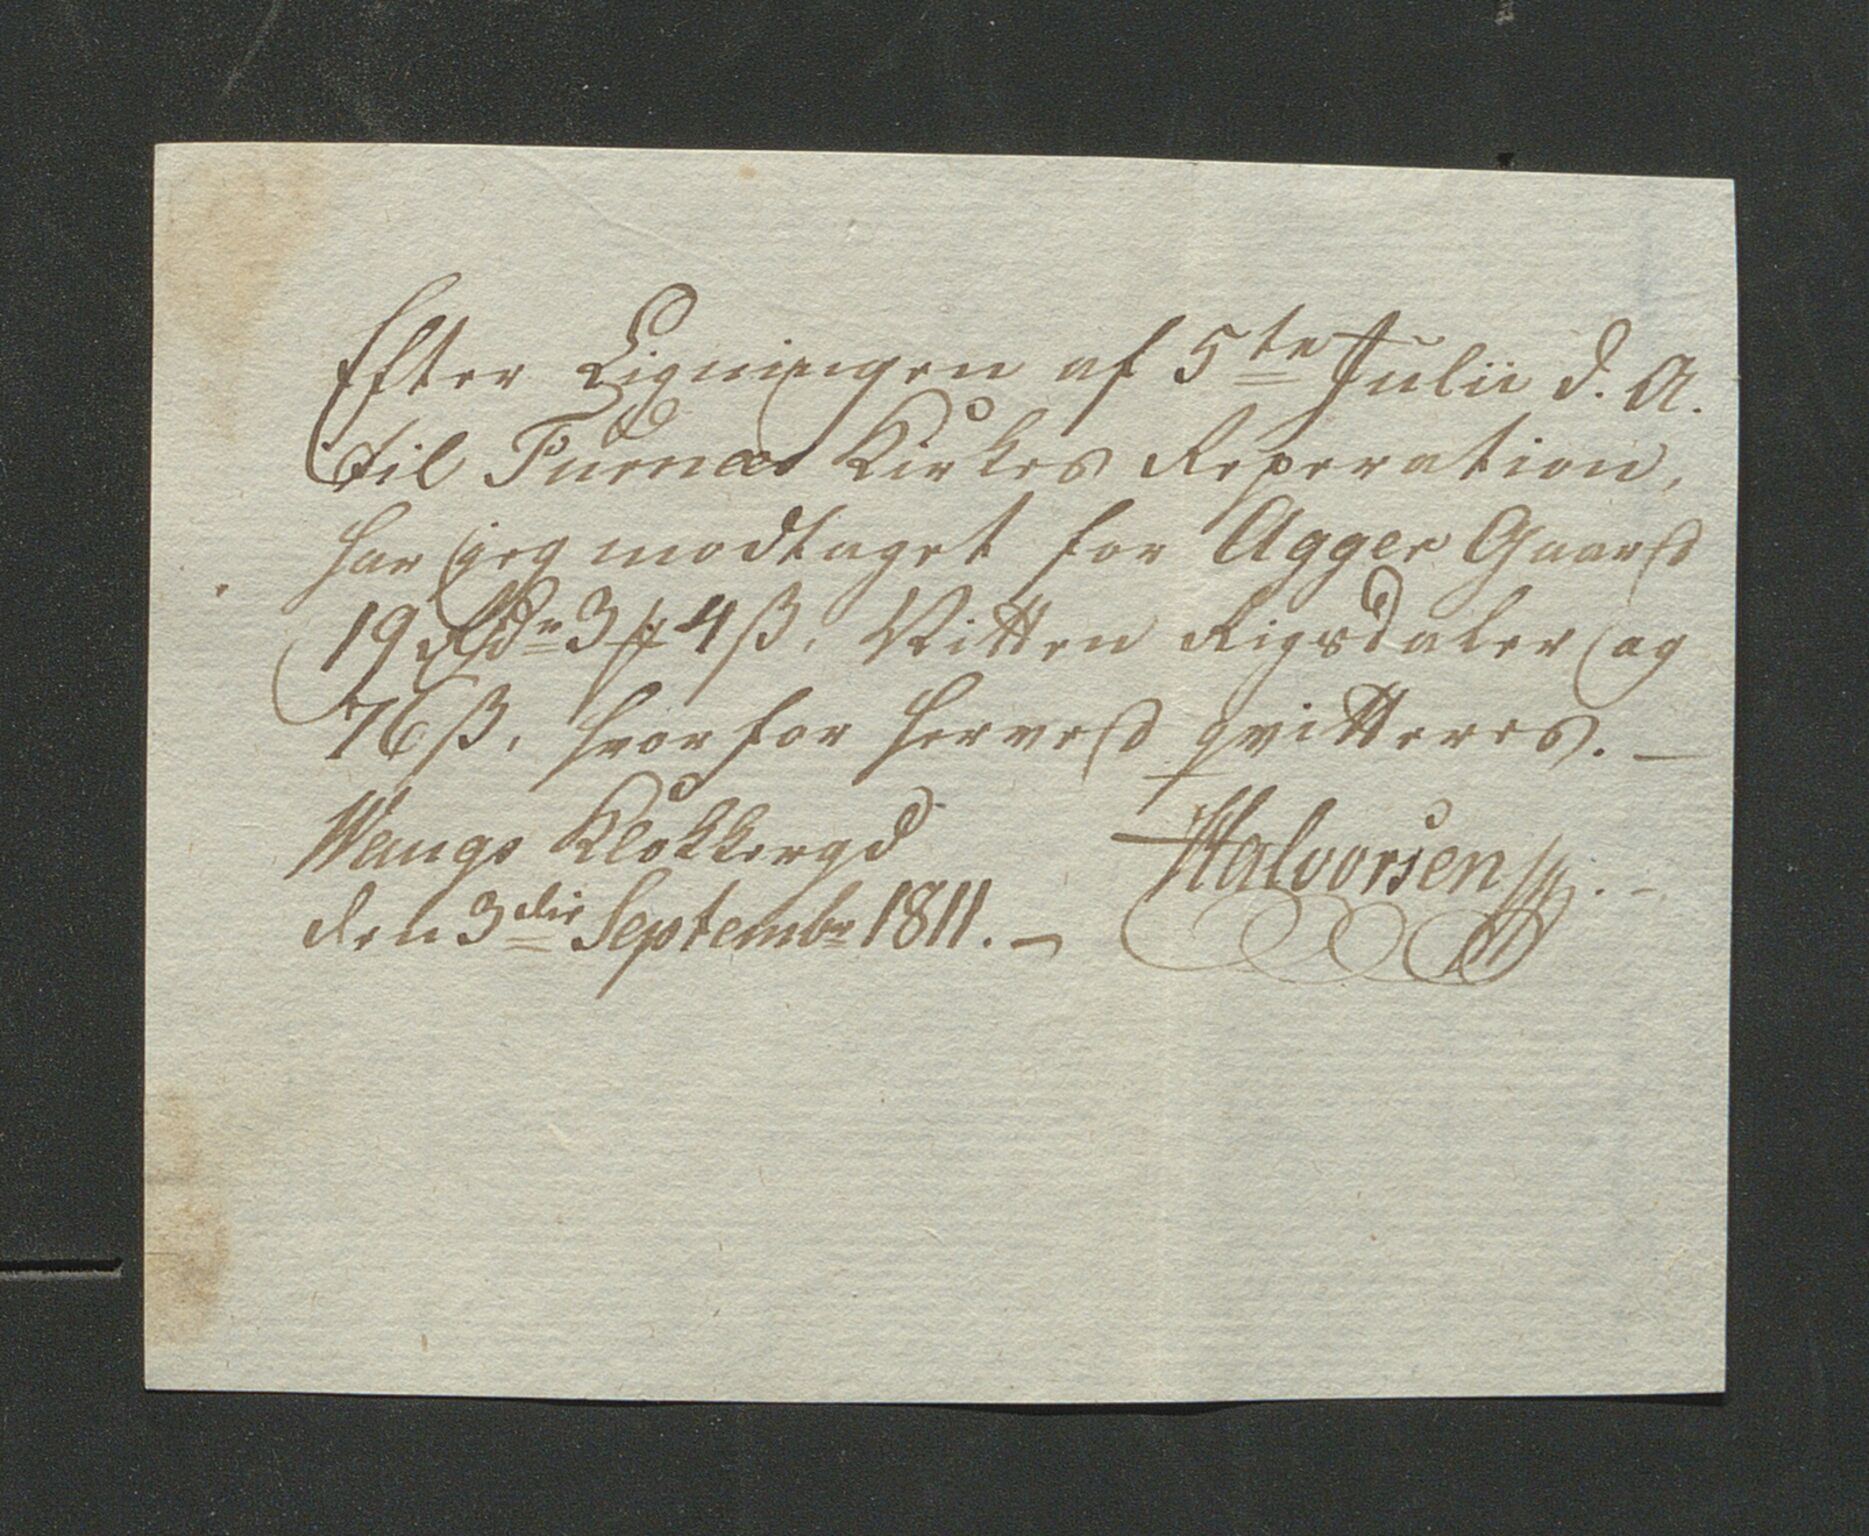 Efter Ligningen af 5te Julii d. A.
til Furnæs Kirkes Reperation,
har jeg modtaget for Agger Gaard
19 Rdr 3 ₰ 4 ß, Nitten Rigsdaler og
76 ß, hvorfor herved qvitteres. —
Wangs Klokkergd
den 3die Septembr 1811. —
Halvorsen